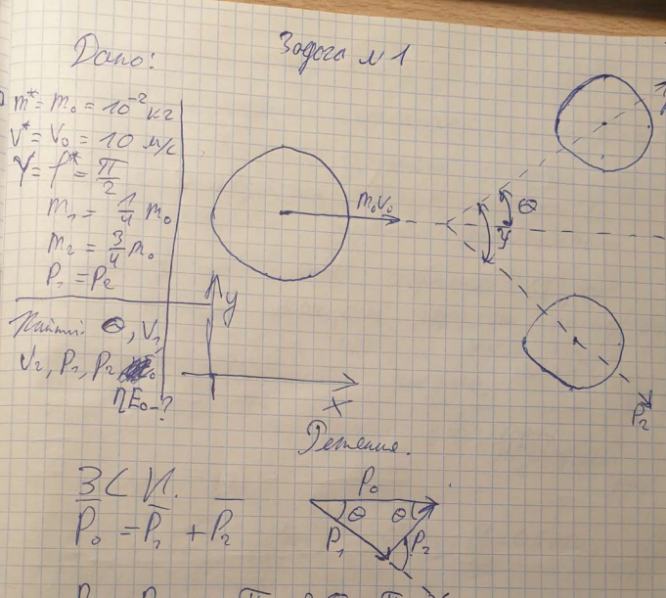 Дано:
Задача №1
m* = m₀ = 10⁻² кг
v* = v₀ = 10 м/с
γ = γ* = π/2
m₁ = 1/4 m₀
m₂ = 3/4 m₀
P₁ = P₂
m₀v₀
θ
γ
y
Найти: θ, v₁
v₂, P₁, P₂
ηE₀ - ?
X
P₂
Решение.
ЗСИ.
P̅₀ = P̅₁ + P̅₂
P₀
θ θ
P₁ P₂